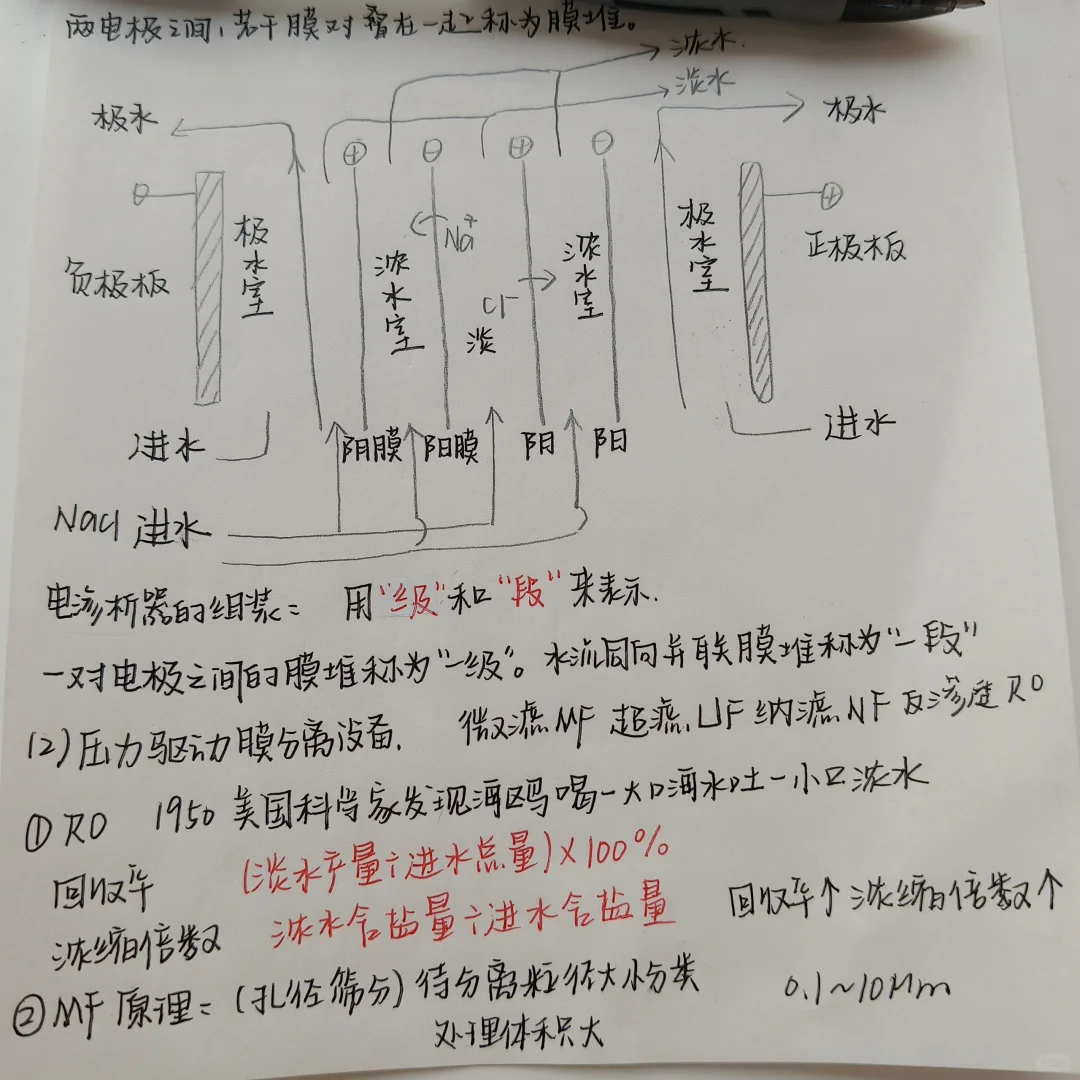 两电极之间,若干膜对叠在一起称为膜堆。
浓水.
淡水
极水
极水
⊕ ⊖ ⊕ ⊖
⊖
⊕
负极板
极水室
浓水室
Na⁺
Cl⁻
淡
浓水室
极水室
正极板
进水
阴膜 阳膜 阴 阳
进水
NaCl 进水
电渗析器的组装: 用“级”和“段”来表示.
一对电极之间的膜堆称为“一级”。水流同向并联膜堆称为“一段”
(2)压力驱动膜分离设备. 微滤MF 超滤UF 纳滤NF 反渗透RO
①RO 1950 美国科学家发现海鸥喝一大口海水吐一小口浓水
回收率 (淡水产量÷进水总量)×100%
浓缩倍数 浓水含盐量÷进水含盐量 回收率↑浓缩倍数↑
②MF原理:(孔径筛分)待分离粒径大小分类 0.1~10μm
处理体积大